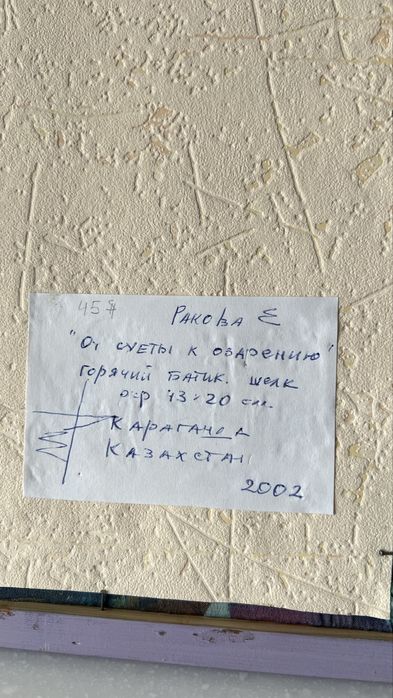 45 $
Ракова Е
"От суеты к озарению"
горячий батик. шелк
р-р 43×20 см.
Караганда
Казахстан
2002